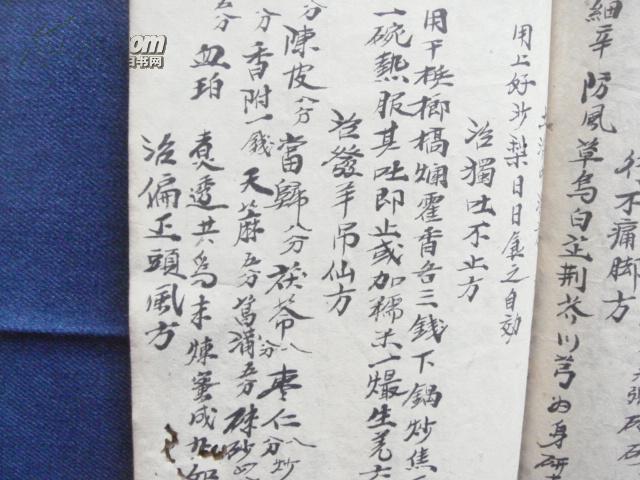 行不痛脚方
細辛 防風 草烏 白芷 荆芥 川芎 为身研
用上好沙梨日日食之自効
治獨吐不止方
用干梹榔槁爛霍香各三錢下鍋炒焦
一碗熱服其吐即止或加糯米一撮生羌
治發羊吊仙方
分 陳皮八分 當歸八分 茯苓八分 枣仁八分炒
分 香附一錢 天蔴五分 菖浦五分 硃砂四
五分 血珀 煮透共為末煉蜜成丸如
治偏正頭風方
.com
书网